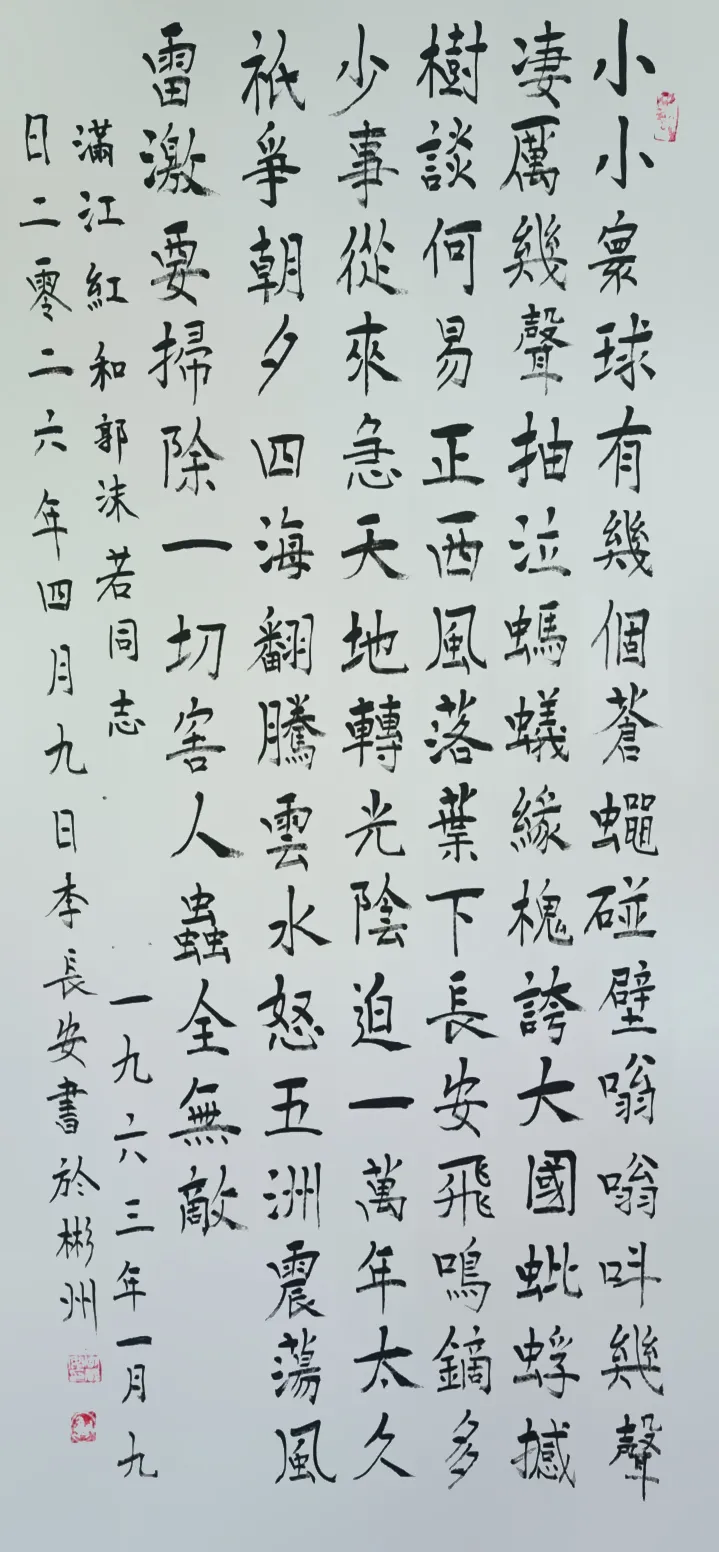 小小寰球有幾個蒼蠅碰壁嗡嗡呌幾聲
凄厲幾聲抽泣螞蟻緣槐誇大國蚍蜉撼
樹談何易正西風落葉下長安飛鳴鏑多
少事從來急天地轉光陰迫一萬年太久
祇爭朝夕四海翻騰雲水怒五洲震蕩風
雷激要掃除一切害人蟲全無敵
滿江紅和郭沫若同志 一九六三年一月九
日二零二六年四月九日李長安書於彬州